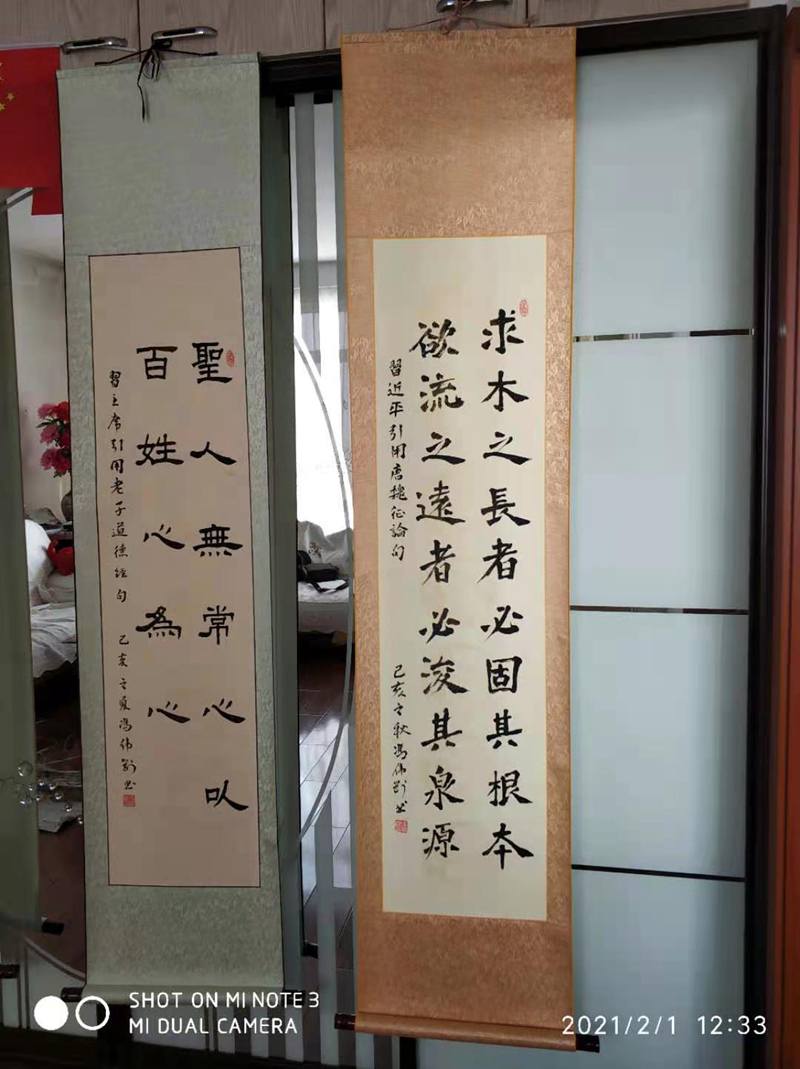 聖人無常心㕥
百姓心為心
習主席引用老子道德經句 己亥之夏馮伟剑书
求木之長者必固其根本
欲流之遠者必浚其泉源
習近平引用唐魏征論句 己亥之秋馮伟剑书
SHOT ON MI NOTE 3
MI DUAL CAMERA
2021/2/1 12:33